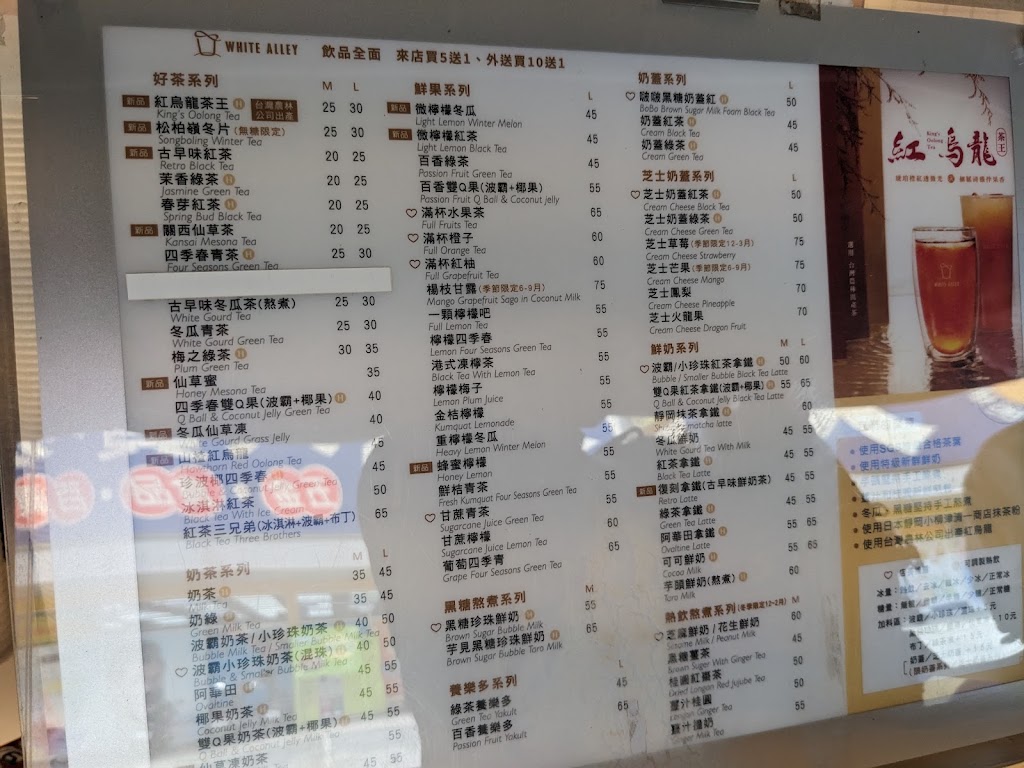 WHITE ALLEY 飲品全面 來店買5送1、外送買10送1
好茶系列 M L
新品 紅烏龍茶王 H 台灣農林公司出產 25 30
King's Oolong Tea
新品 松柏嶺冬片(無糖限定) 25 30
Songboling Winter Tea
新品 古早味紅茶 20 25
Retro Black Tea
茉香綠茶 H 20 25
Jasmine Green Tea
春芽紅茶 H 20 25
Spring Bud Black Tea
新品 關西仙草茶 20 25
Kansai Mesona Tea
四季春青茶 H 25 30
Four Seasons Green Tea
古早味冬瓜茶(熬煮) 25 30
White Gourd Tea
冬瓜青茶 25 30
White Gourd Green Tea
梅之綠茶 H 30 35
Plum Green Tea
新品 仙草蜜 35
Honey Mesona Tea
四季春雙Q果(波霸+椰果) H 40
Q Ball & Coconut Jelly Green Tea
新品 冬瓜仙草凍 40
Gourd Grass Jelly
新品 紅烏龍 45
Red Oolong Tea
四季春 45
Jelly Green Tea
冰淇淋紅茶 50
Black Tea With Ice Cream
紅茶三兄弟(冰淇淋+波霸+布丁) 65
Black Tea Three Brothers
奶茶系列 M L
奶茶 H 35 45
Milk Tea
奶綠 H 35 45
Green Milk Tea
波霸奶茶/小珍珠奶茶 H 40 50
Bubble Milk Tea / Small Bubble Milk Tea
♡ 波霸小珍珠奶茶(混珠) H 40 50
Bubble & Smaller Bubble Milk Tea
阿華田 H 45 55
Ovaltine
椰果奶茶 H 45 55
Coconut Jelly Milk Tea
雙Q果奶茶(波霸+椰果) H 45 55
Q Ball & Coconut Jelly Milk Tea
仙草凍奶茶 45 55
鮮果系列 L
新品 微檸檬冬瓜 45
Light Lemon Winter Melon
新品 微檸檬紅茶 45
Light Lemon Black Tea
百香綠茶 45
Passion Fruit Green Tea
百香雙Q果(波霸+椰果) 55
Passion Fruit Q Ball & Coconut jelly
♡ 滿杯水果茶 65
Full Fruits Tea
♡ 滿杯橙子 60
Full Orange Tea
♡ 滿杯紅柚 60
Full Grapefruit Tea
楊枝甘露(季節限定6-9月) 75
Mango Grapefruit Sago in Coconut Milk
一顆檸檬吧 55
Full Lemon Tea
檸檬四季春 55
Lemon Four Seasons Green Tea
港式凍檸茶 55
Black Tea With Lemon Tea
檸檬梅子 55
Lemon Plum Juice
金桔檸檬 55
Kumquat Lemonade
重檸檬冬瓜 55
Heavy Lemon Winter Melon
新品 蜂蜜檸檬 55
Honey Lemon
鮮桔青茶 55
Fresh Kumquat Four Seasons Green Tea
♡ 甘蔗青茶 60
Sugarcane Juice Green Tea
甘蔗檸檬 65
Sugarcane Juice Lemon Tea
葡萄四季青
Grape Four Seasons Green Tea
黑糖熬煮系列 M
♡ 黑糖珍珠鮮奶 H 55
Brown Sugar Bubble Milk
芋見黑糖珍珠鮮奶 H 65
Brown Sugar Bubble Taro Milk
養樂多系列 L
綠茶養樂多 45
Green Tea Yakult
百香養樂多 65
Passion Fruit Yakult
奶蓋系列 L
♡ 啵啵黑糖奶蓋紅 H 50
BoBo Brown Sugar Milk Foam Black Tea
奶蓋紅茶 H 45
Cream Black Tea
奶蓋綠茶 H 45
Cream Green Tea
芝士奶蓋系列 L
♡ 芝士奶蓋紅茶 H 50
Cream Cheese Black Tea
芝士奶蓋綠茶 H 50
Cream Cheese Green Tea
芝士草莓(季節限定12-3月) 75
Cream Cheese Strawberry
芝士芒果(季節限定6-9月) 75
Cream Cheese Mango
芝士鳳梨 70
Cream Cheese Pineapple
芝士火龍果 70
Cream Cheese Dragon Fruit
鮮奶系列 M L
♡ 波霸/小珍珠紅茶拿鐵 H 50 60
Bubble / Smaller Bubble Black Tea Latte
雙Q果紅茶拿鐵(波霸+椰果) H 55 65
Q Ball & Coconut Jelly Black Tea Latte
靜岡抹茶拿鐵 H 60
matcha latte
冬瓜鮮奶 45 55
White Gourd Tea With Milk
紅茶拿鐵 H 45 55
Black Tea Latte
新品 復刻拿鐵(古早味鮮奶茶) 45 55
Retro Latte
綠茶拿鐵 H 45 55
Green Tea Latte
阿華田拿鐵 H 55 65
Ovaltine Latte
可可鮮奶 H 55 65
Cocoa Milk
芋頭鮮奶(熬煮) H 60
Taro Milk
熱飲熬煮系列(冬季限定12-2月) M
♡ 芝麻鮮奶/花生鮮奶 60
Sesame Milk / Peanut Milk
黑糖薑茶 45
Brown Sugar With Ginger Tea
桂圓紅棗茶 50
Dried Longan Red Jujube Tea
薑汁桂圓 50
Longan Ginger Tea
薑汁撞奶 50
Ginger Milk Tea
紅烏龍 茶王
King's Oolong Tea
WHITE ALLEY
使用特級新鮮鮮奶